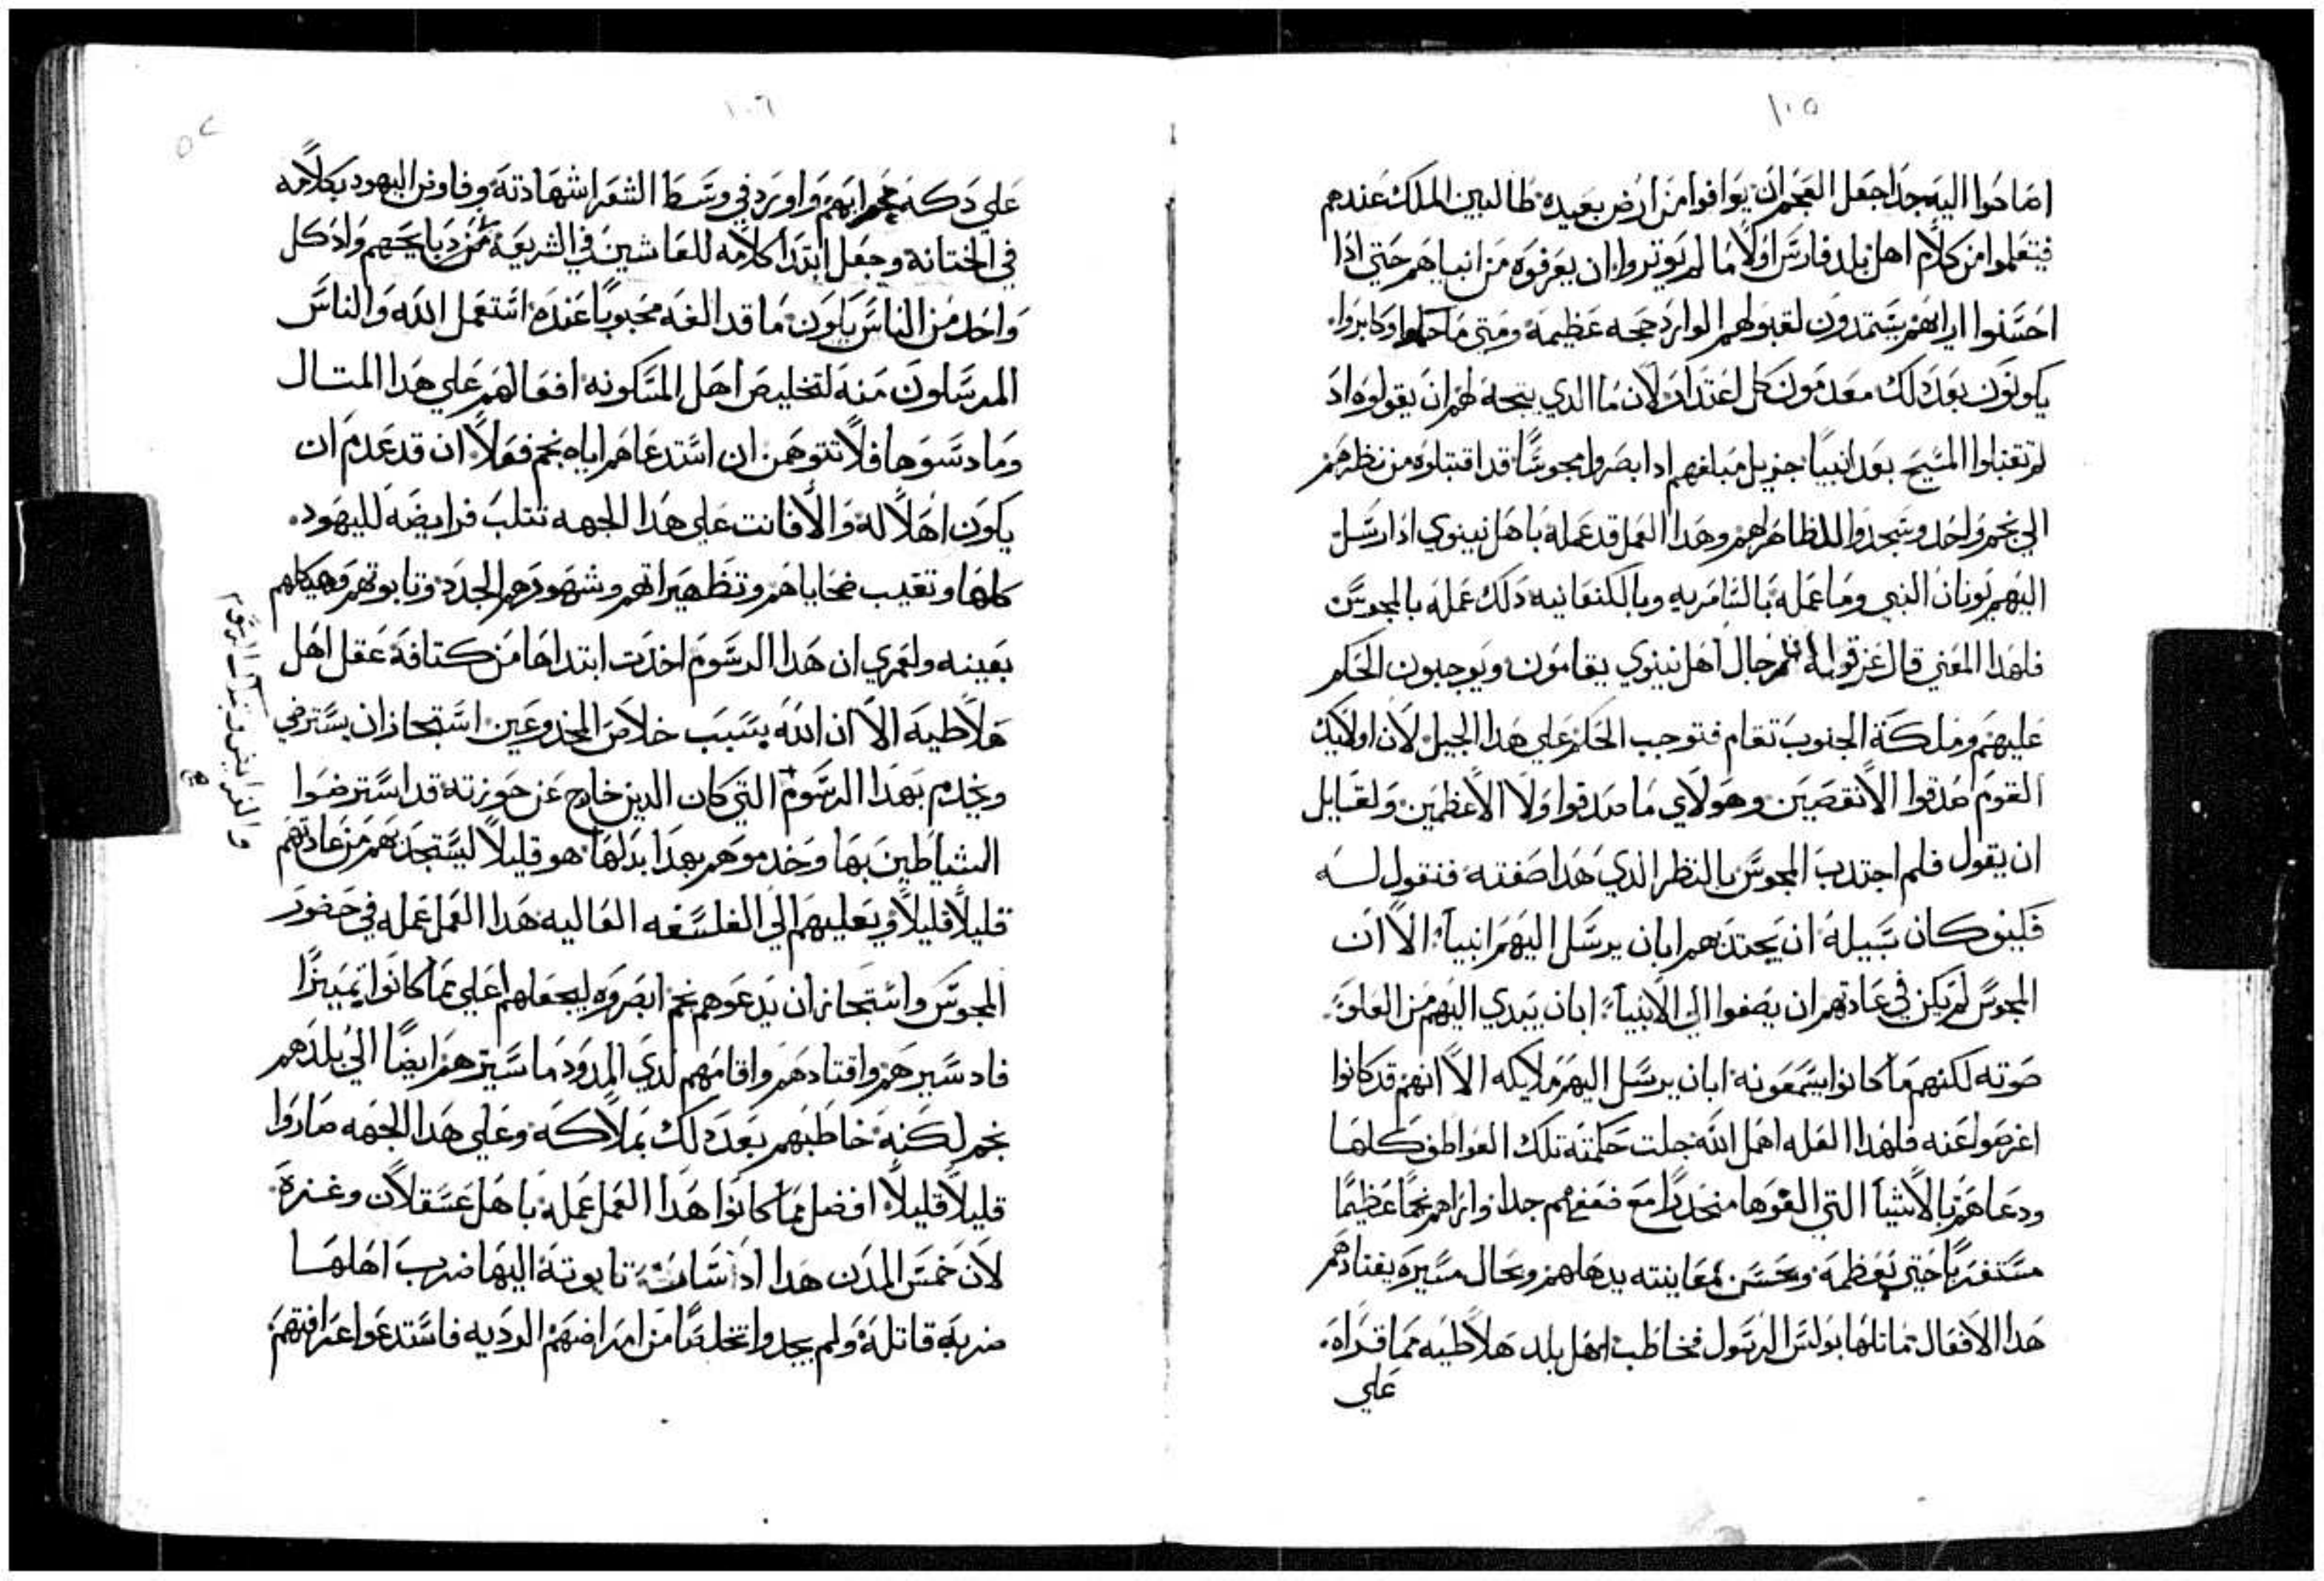 ١٠٥
اصاحوا اليه جدا جعل العجم ان يوافوا من ارض بعيده طالبين الملك عندهم
فيتعلموا من كلام اهل بلد فارس اولا ما لم يوتروا ان يعرفوه من انبياهم حتي ادا
احسنوا ايرايهم يستمدون لقبولهم الوارد حجه عظيمه ومتي ما وكابروا
يكونون بعد دلك معدمون كل اعتدار لان ما الدي يتجه لهم ان يقولوه اد
لم تقبلوا المسيح بعد انبيا جزيل مبلغهم اد ابصروا مجوسا قد اقتبلوه من نظرهم
الي نجم واحد وسجدوا للظاهر لهم وهدا العمل قد عمله باهل نينوي اد ارسل
اليهم يونان النبي وما عمله بالسامريه وبالكنعانيه دلك عمله بالمجوس
فلهدا المعني قال عز قوله ان رجال اهل نينوي يقامون ويوجبون الحكم
عليهم وملكة الجنوب تقام فتوجب الحكم علي هدا الجيل لان اولايك
القوم صدقوا الانقصين وهولاي ما صدقوا ولا الاعظمين ولقايل
ان يقول فلم اجتدب المجوس بالنظر الذي هدا صفته فنقول له
فكيف كان سبيله ان يجتدبهم ابان يرسل اليهم انبيا الا ان
المجوس لم يكن في عادتهم ان يصغوا الي الانبيا ابان يبدي اليهم من العلو
صوته لكنهم ما كانوا يسمعونه ابان يرسل اليهم ملايكه الا انهم قد كانوا
اعرضوا عنه فلهدا العله اهمل الله جلت حكمته تلك العواطف كلها
ودعاهم بالاشيا التي الفوها منحدرا مع ضعفهم جدا واراهم نجما عظيما
مستغربا حتي بعظمه وبحسن معاينته يدهلهم وبحال مسيره يقتادهم
هدا الافعال ماتلها بولس الرسول فخاطب اهل بلد هلاطيه مما قراه
علي
١٠٦
٥٢
علي دكة محرابهم واورد في وسط الشعرا شهادته وفاوض اليهود بكلامه
في الختانه وجعل ابتدا كلامه للعايشين في الشريعه من دبايحهم واد كل
واحد من الناس يكون ما قد الفه محبوبا عنده استعمل الله والناس
المرسلون منه لتخليص اهل المسكونه افعالهم علي هدا المتال
وما دسوها فلا تتوهمن ان استدعاهم اياه بنجم فعلا ان قد عدم ان
يكون اهلا له والا فانت علي هدا الجهه تتلب فرايضه لليهود
كلها وتعيب ضحاياهم وتطهيراتهم وشهودهم الجدد وتابوتهم وهيكلهم
بعينه ولعمري ان هدا الرسوم اخدت ابتداها من كتافة عقل اهل
هلاطيه الا ان الله بسبب خلاص المخدوعين استجاز ان يسترضي
ويخدم بهدا الرسوم التي كان الدين خارج عن حوزته قد استرضوا
الشياطين بها وخدموهم بهدا بدلها هو قليلا ليستجدبهم من عادتهم
قليلا قليلا ويعليهم الي الفلسفه العاليه هدا العمل عمله في حضور
المجوس واستجاز ان يدعوهم نجم ابصروه ليجعلهم اعلي مما كانوا تمييزا
فاد سيرهم واقتادهم واقامهم لدي المدود ما سيرهم ايضا الي بلدهم
بنجم لكنه خاطبهم بعد دلك بملاكه وعلي هدا الجهه صاروا
قليلا قليلا افضل مما كانوا هدا العمل عمله باهل عسقلان وغزة
لان خمس المدن هدا اد سارت تابوته اليها ضرب اهلها
ضربة قاتلة ولم يجدوا تخلصا من امراضهم الرديه فاستدعوا عرافيهم